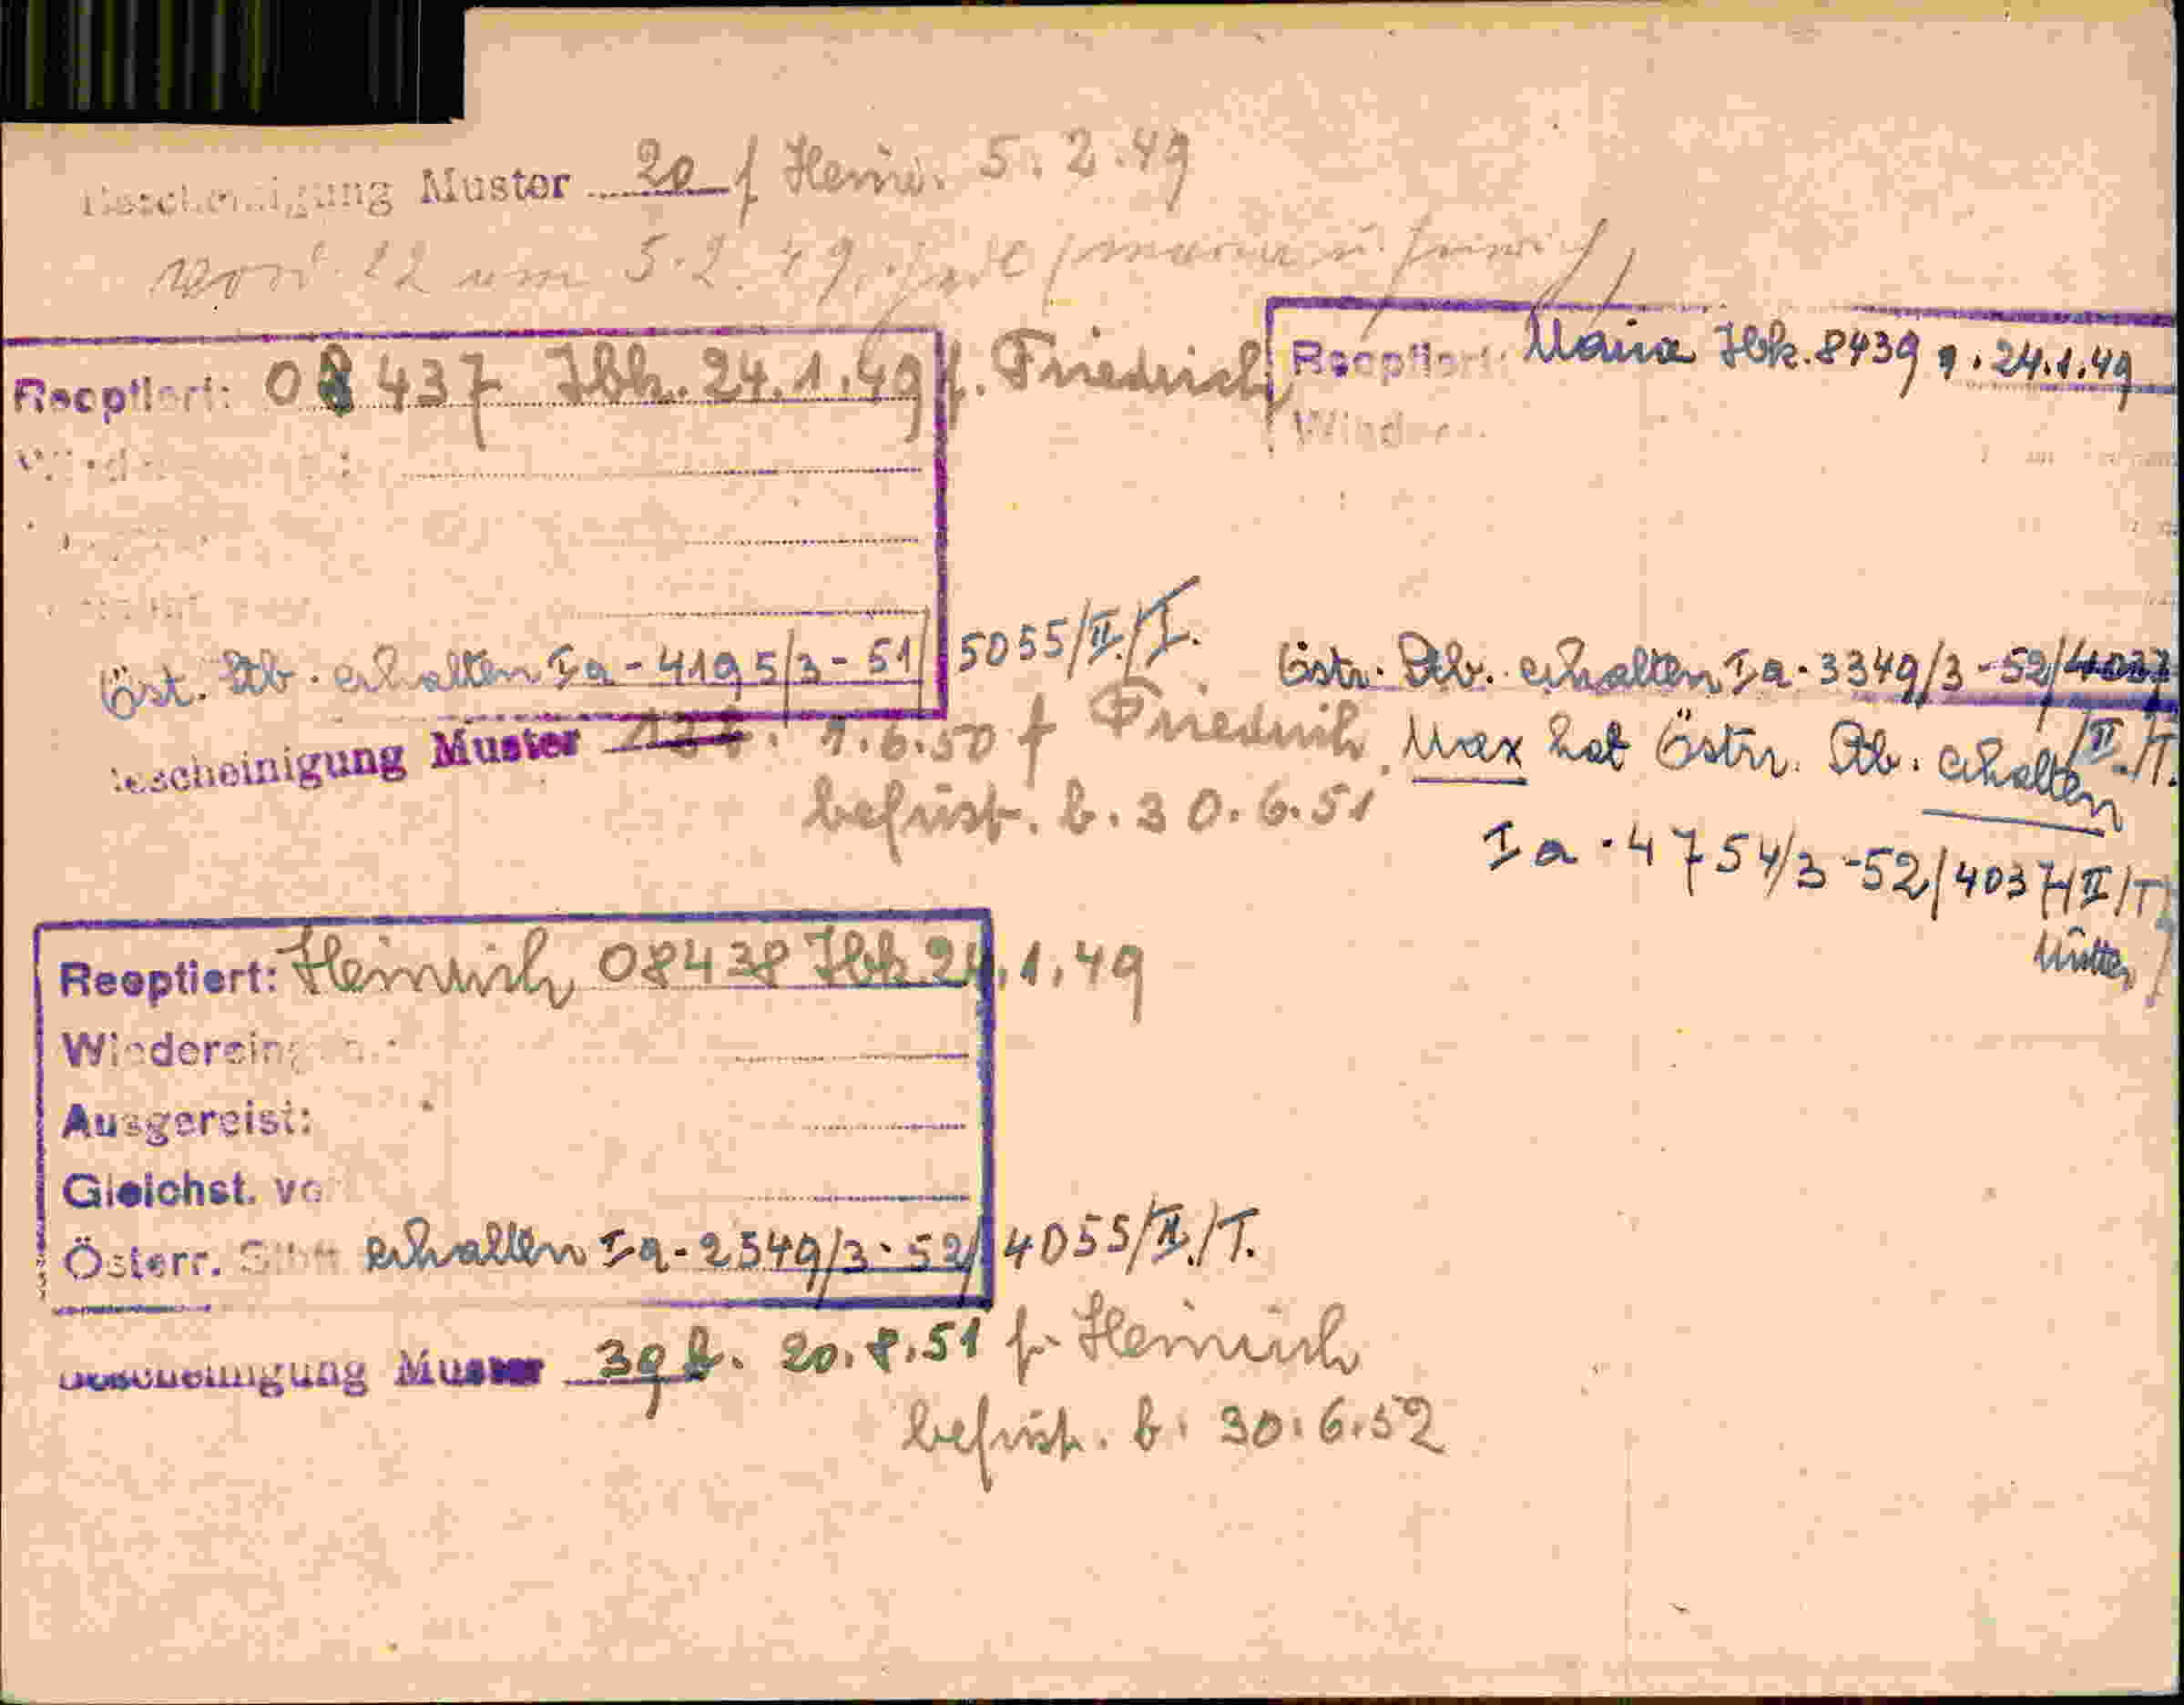 Bescheinigung Muster 20 f Heinr. 5.2.49
22 5.2.49.
Reoptiert: 08437 Ibk. 24.1.49 f. Friedrich
Reoptiert: Maria Ibk. 8439 24.1.49
Wieder
Öst. Stb. erhalten Ia-4195/3-51/5055/II./T.
Östr. Stb. erhalten Ia-3349/3-52/4037/II./T.
Bescheinigung Muster 1.6.50 f Friedrich
befrist. b. 30.6.51
Max hat Östr. Stb. erhalten
Ia-4754/3-52/4037/II/T
Reoptiert: Heinrich 08438 Ibk. 24.1.49
Wiedereing
Ausgereist:
Gleichst. vo
Österr. erhalten Ia-2549/3-52/4055/II./T.
Bescheinigung Muster 39 b. 20.8.51 f. Heinrich
befrist. b. 30.6.52